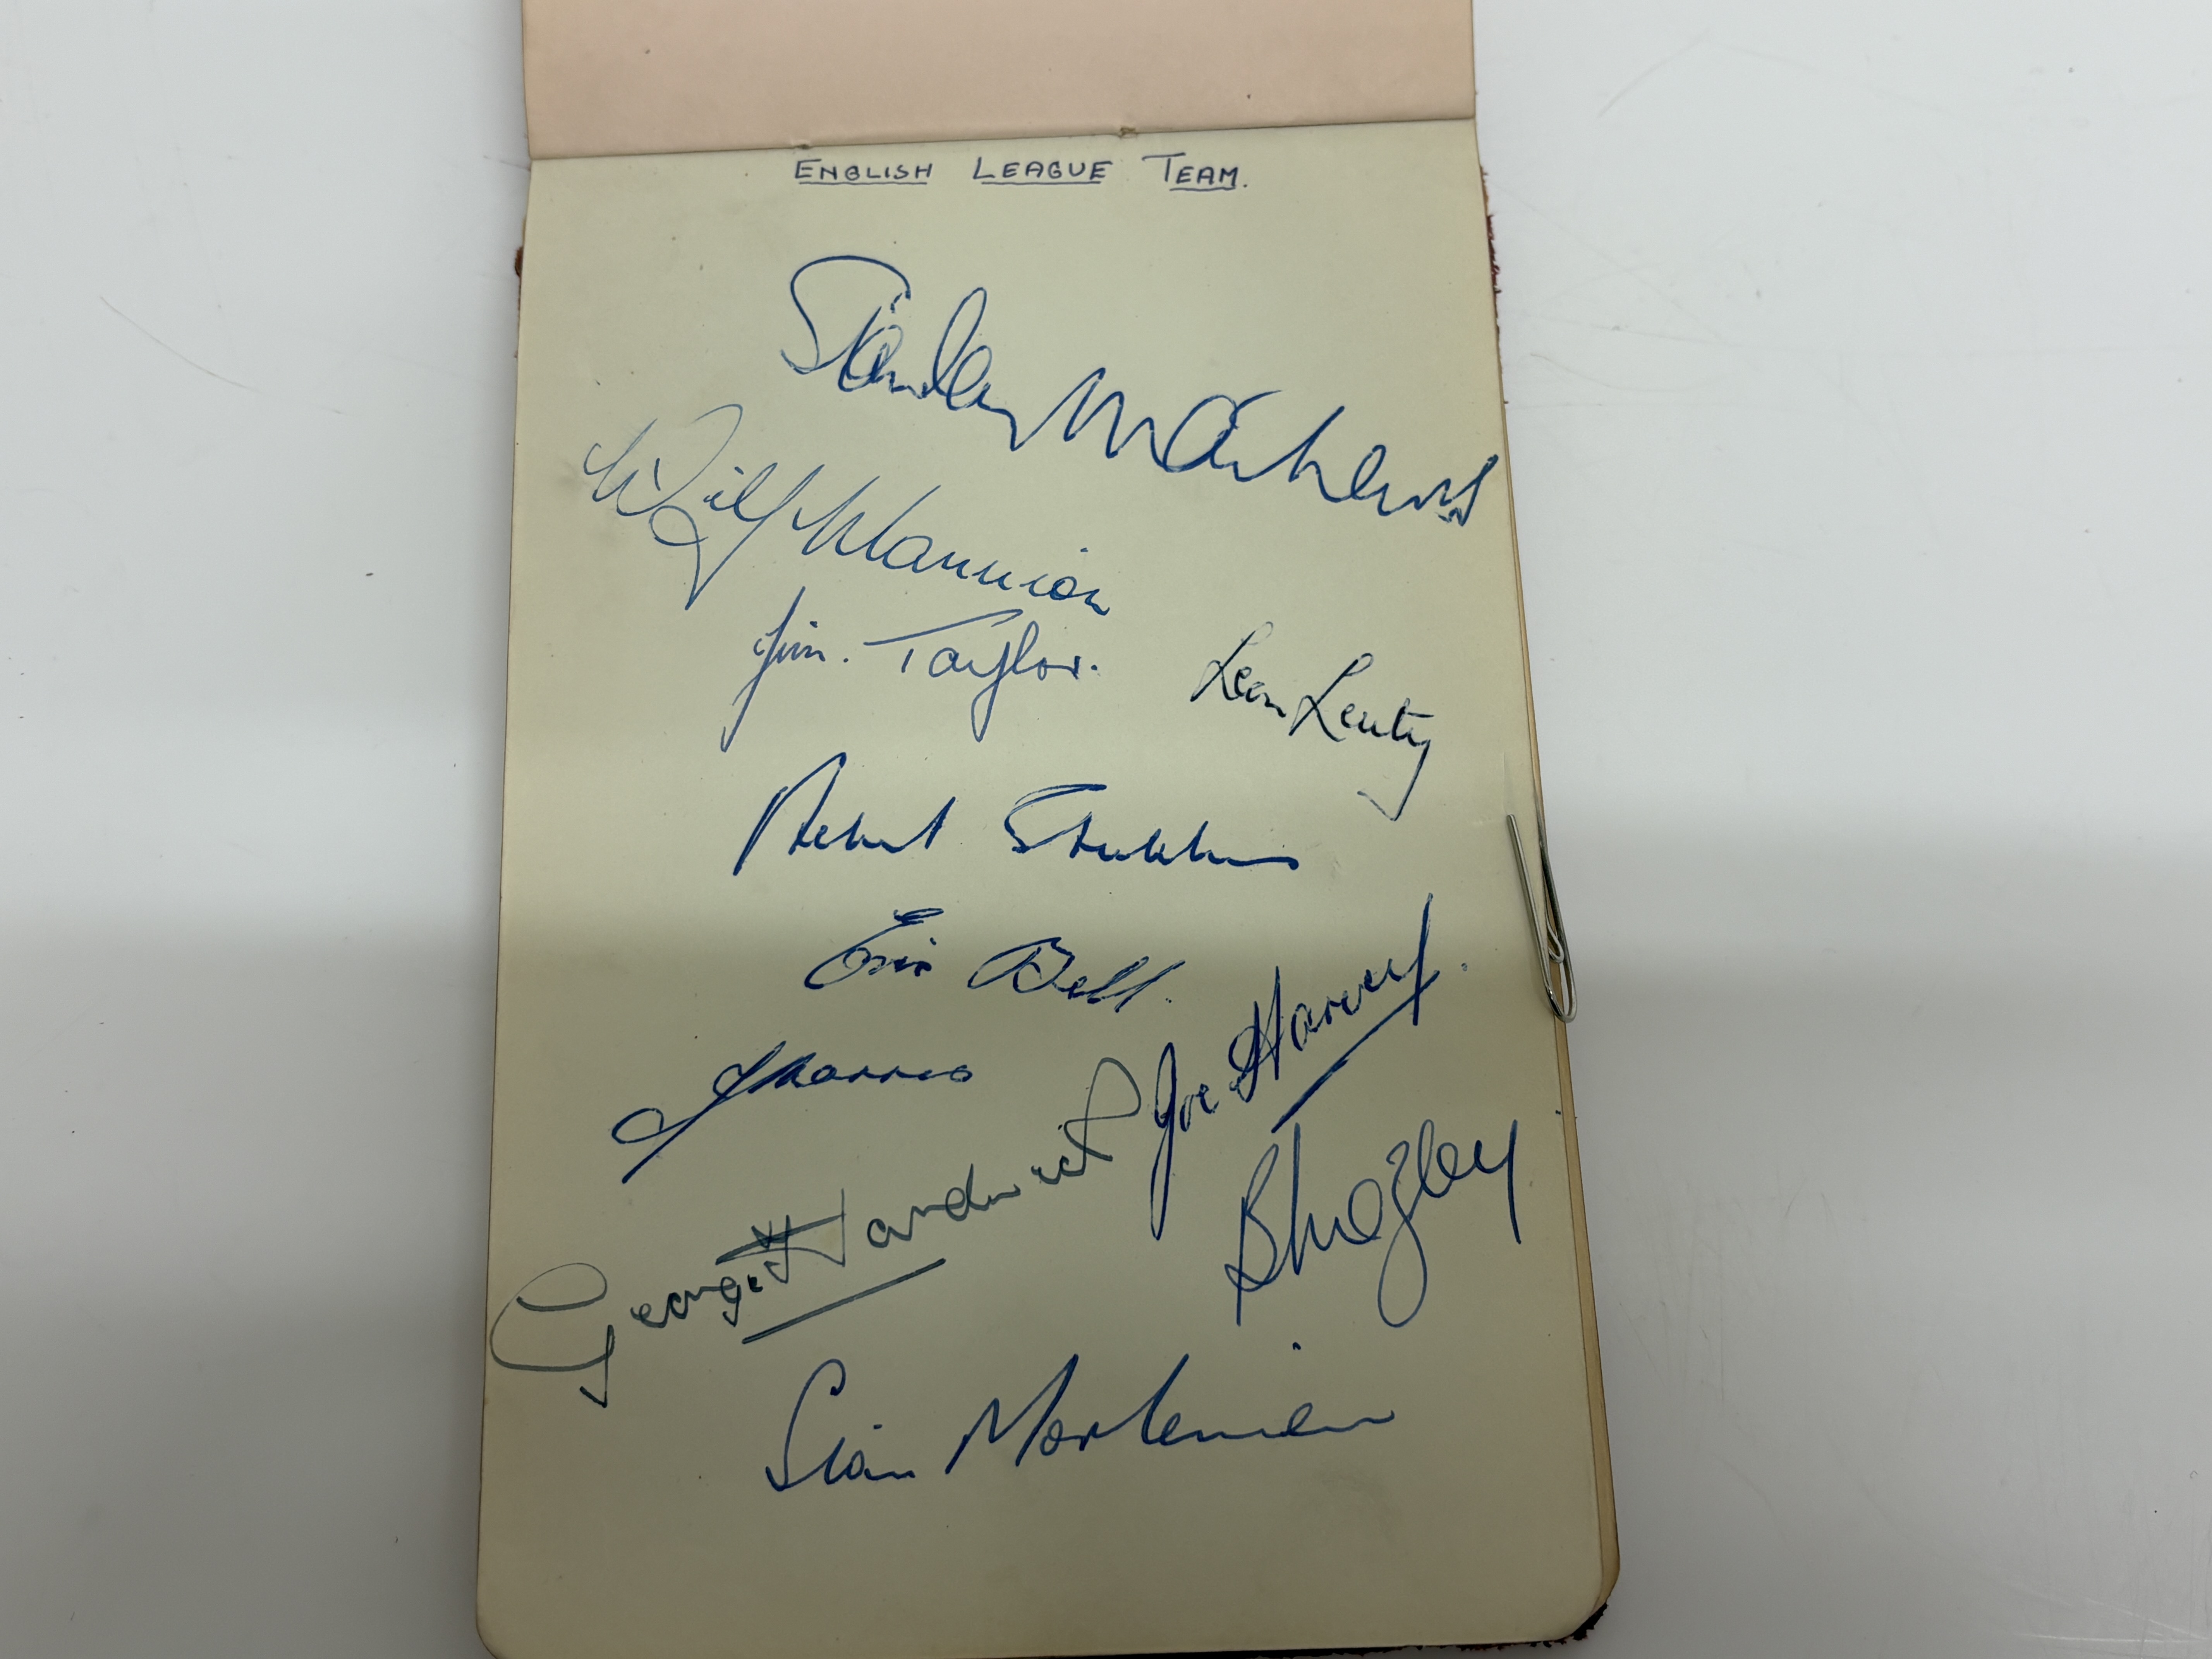 ENGLISH LEAGUE TEAM.
Stanley Matthews
Wilf Mannion
Jim. Taylor.
Leon Leuty
Robert Stubbins
Eric Bell.
J Harris
Joe Harvey.
George Hardwick
B Mozley
Stan Mortensen